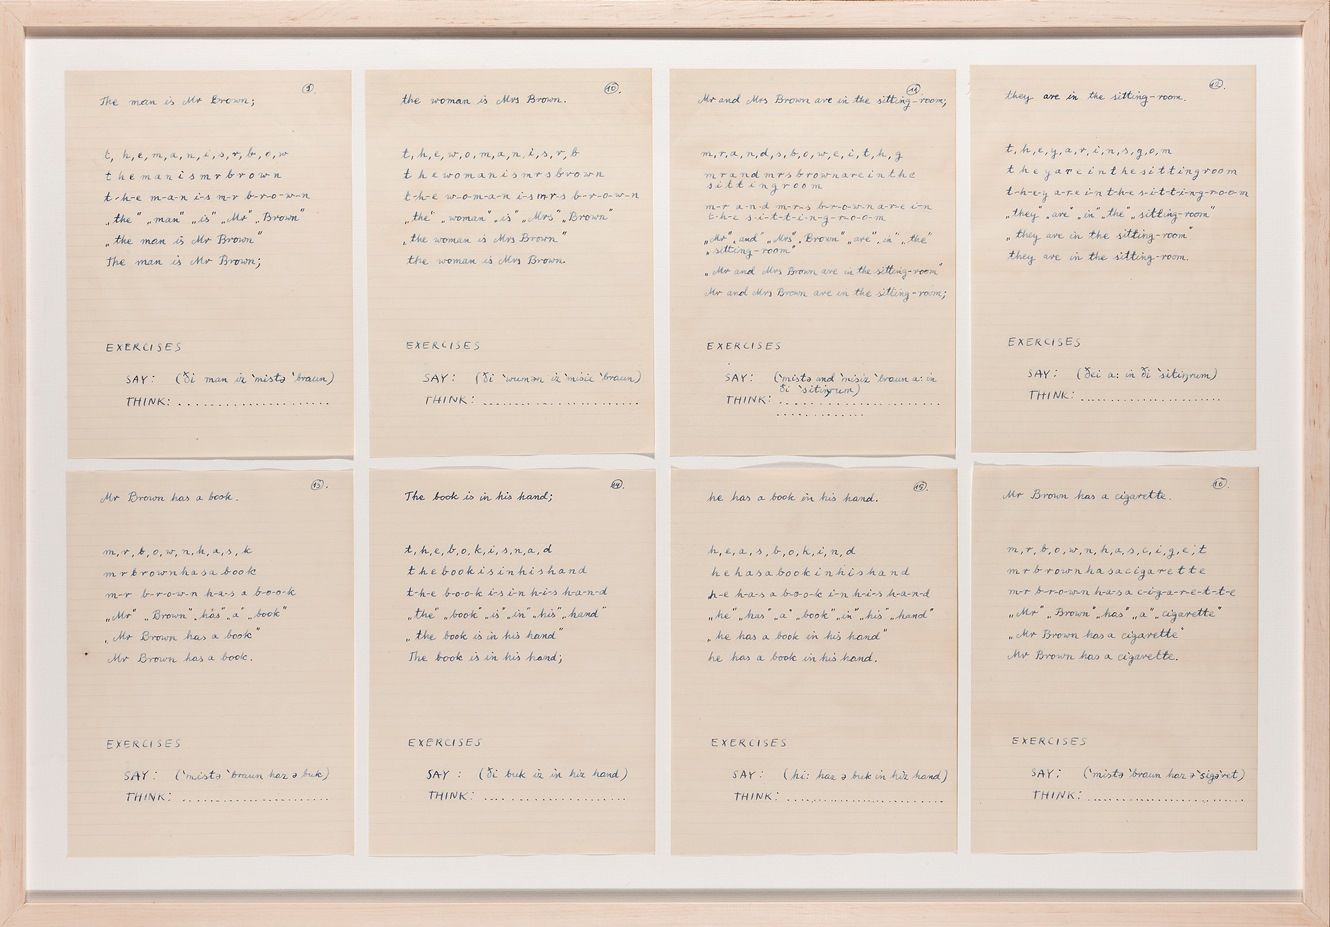 9.
The man is Mr Brown;
t, h, e, m, a, n, i, s, r, b, o, w
t h e m a n i s m r b r o w n
t-h-e m-a-n i-s m-r b-r-o-w-n
„the“ „man“ „is“ „Mr“ „Brown“
„the man is Mr Brown“
The man is Mr Brown;
EXERCISES
SAY: (ði man iz 'mistə 'braun)
THINK: . . . . . . . . . . . . . . . . . . . . . .
10.
the woman is Mrs Brown.
t, h, e, w, o, m, a, n, i, s, r, b
t h e w o m a n i s m r s b r o w n
t-h-e w-o-m-a-n i-s m-r-s b-r-o-w-n
„the“ „woman“ „is“ „Mrs“ „Brown“
„the woman is Mrs Brown“
the woman is Mrs Brown.
EXERCISES
SAY: (ði 'wumən iz 'misiz 'braun)
THINK: . . . . . . . . . . . . . . . . . . . . . .
11.
Mr and Mrs Brown are in the sitting-room;
m, r, a, n, d, s, b, o, w, e, i, t, h, g
m r a n d m r s b r o w n a r e i n t h e
s i t t i n g r o o m
m-r a-n-d m-r-s b-r-o-w-n a-r-e i-n
t-h-e s-i-t-t-i-n-g-r-o-o-m
„Mr“ „and“ „Mrs“ „Brown“ „are“ „in“ „the“
„sitting-room“
„Mr and Mrs Brown are in the sitting-room“
Mr and Mrs Brown are in the sitting-room;
EXERCISES
SAY: ('mistə and 'misiz 'braun a: in
ði 'sitiŋrum)
THINK: . . . . . . . . . . . . . . . . . . . . . . . .
. . . . . . . . . . . . .
12.
they are in the sitting-room.
t, h, e, y, a, r, i, n, s, g, o, m
t h e y a r e i n t h e s i t t i n g r o o m
t-h-e-y a-r-e i-n t-h-e s-i-t-t-i-n-g-r-o-o-m
„they“ „are“ „in“ „the“ „sitting-room“
„they are in the sitting-room“
they are in the sitting-room.
EXERCISES
SAY: (ðei a: in ði 'sitiŋrum)
THINK: . . . . . . . . . . . . . . . . . . . . .
13.
Mr Brown has a book.
m, r, b, o, w, n, h, a, s, k
m r b r o w n h a s a b o o k
m-r b-r-o-w-n h-a-s a b-o-o-k
„Mr“ „Brown“ „has“ „a“ „book“
„Mr Brown has a book“
Mr Brown has a book.
EXERCISES
SAY: ('mistə 'braun haz ə buk)
THINK: . . . . . . . . . . . . . . . . . . . . .
14.
The book is in his hand;
t, h, e, b, o, k, i, s, n, a, d
t h e b o o k i s i n h i s h a n d
t-h-e b-o-o-k i-s i-n h-i-s h-a-n-d
„the“ „book“ „is“ „in“ „his“ „hand“
„the book is in his hand“
The book is in his hand;
EXERCISES
SAY: (ði buk iz in hiz hand)
THINK: . . . . . . . . . . . . . . . . . . . . .
15.
he has a book in his hand.
h, e, a, s, b, o, k, i, n, d
h e h a s a b o o k i n h i s h a n d
h-e h-a-s a b-o-o-k i-n h-i-s h-a-n-d
„he“ „has“ „a“ „book“ „in“ „his“ „hand“
„he has a book in his hand“
he has a book in his hand.
EXERCISES
SAY: (hi: haz ə buk in hiz hand)
THINK: . . . . . . . . . . . . . . . . . . . . . . .
16.
Mr Brown has a cigarette.
m, r, b, o, w, n, h, a, s, c, i, g, e, t
m r b r o w n h a s a c i g a r e t t e
m-r b-r-o-w-n h-a-s a c-i-g-a-r-e-t-t-e
„Mr“ „Brown“ „has“ „a“ „cigarette“
„Mr Brown has a cigarette“
Mr Brown has a cigarette.
EXERCISES
SAY: ('mistə 'braun haz ə 'sigə'ret)
THINK: . . . . . . . . . . . . . . . . . . . . . . .